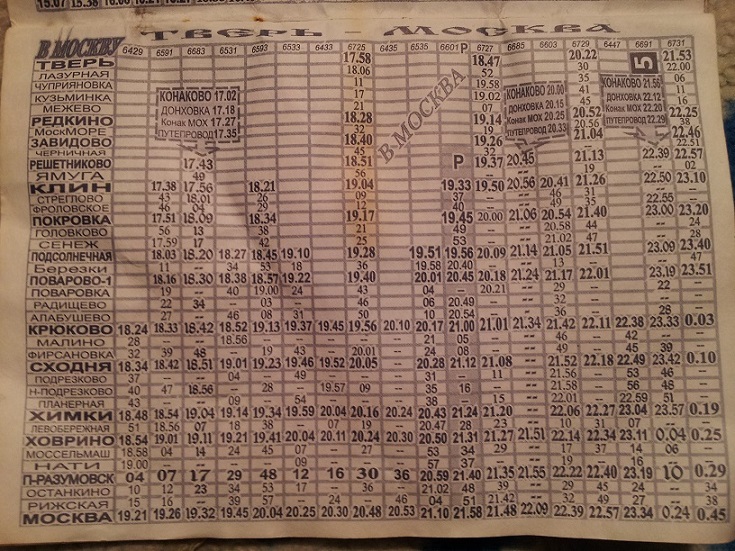 15.38 16.00 16.21
ТВЕРЬ – МОСКВА
В МОСКВУ 6429 6591 6683 6531 6593 6533 6433 6725 6435 6535 6601 Р 6727 6685 6603 6729 6447 6691 6731
ТВЕРЬ 17.58 18.47 20.22 5 21.53
ЛАЗУРНАЯ 18.06 52 30 22.00
ЧУПРИЯНОВКА 11 58 35 06
КУЗЬМИНКА 17 19.02 40 11
МЕЖЕВО 21 07 45
РЕДКИНО 18.28 19.14 20.52 22.25
МоскМОРЕ 32 19 20.56
ЗАВИДОВО 18.40 19.26 21.04 22.46
ЧЕРНИЧНАЯ 45 32 22.51
КОНАКОВО 17.02
ДОНХОВКА 17.18
Конак МОХ 17.27
ПУТЕПРОВОД 17.35
В МОСКВА
КОНАКОВО 20.00
ДОНХОВКА 20.15
Конак МОХ 20.25
ПУТЕПРОВОД 20.33
КОНАКОВО 21.56
ДОНХОВКА 22.12
Конак МОХ 22.20
ПУТЕПРОВОД 22.29
РЕШЕТНИКОВО 17.43 18.51 Р 19.37 20.45 21.13 22.39 22.57
ЯМУГА 49 56 02
КЛИН 17.38 17.56 18.21 19.04 19.33 19.50 20.56 20.41 21.26 22.50 23.10
СТРЕГЛОВО 43 18.01 26 09 37 45 31
ФРОЛОВСКОЕ 46 04 29 12 40 49
ПОКРОВКА 17.51 18.09 18.34 19.17 19.45 20.00 21.06 20.54 21.40 23.00 23.20
ГОЛОВКОВО 56 13 38 21 49 58 44
СЕНЕЖ 17.59 17 42 25 53 21.02 47 28
ПОДСОЛНЕЧНАЯ 18.03 18.20 18.27 18.45 19.10 19.28 19.51 19.56 20.09 21.14 21.05 21.51 23.09 23.40
Березки 11 -- 34 53 18 36 19.58 20.40 13 47
ПОВАРОВО-1 18.16 18.30 18.38 18.57 19.22 19.40 20.01 20.45 20.18 21.24 21.17 22.01 23.19 23.51
ПОВАРОВКА 19 -- 40 19.00 24 43 04 -- 20.21 -- --
РАДИЩЕВО 22 34 -- 03 -- 46 06 20.49 -- -- 32
АЛАБУШЕВО 27 -- 46 08 31 50 10 20.54 -- -- 36
КРЮКОВО 18.24 18.33 18.42 18.52 19.13 19.37 19.45 19.56 20.10 20.17 21.00 21.01 21.34 21.42 22.11 22.38 23.33 0.03
МАЛИНО 28 -- -- 18.56 -- -- -- -- -- 21 05 -- -- 46 -- 42 -- --
ФИРСАНОВКА 32 39 48 -- 19 43 -- 20.01 -- 24 08 -- -- 45 39 --
СХОДНЯ 18.34 18.42 18.51 19.01 19.23 19.46 19.52 20.05 20.28 21.12 21.08 21.52 22.18 22.49 23.42 0.10
ПОДРЕЗКОВО 37 -- -- 04 -- 49 -- -- 31 -- 11 -- 21.56 -- 53 46 --
Н-ПОДРЕЗКОВО 40 47 18.56 -- 28 -- 19.57 09 35 16 -- 21.58 -- 56 48 --
ПЛАНЕРНАЯ 43 -- -- 09 -- 54 -- -- 38 -- -- 22.01 22.59 51 --
ХИМКИ 18.48 18.54 19.04 19.14 19.34 19.59 20.04 20.16 20.24 20.43 21.24 21.20 22.06 22.27 23.04 23.57 0.19
ЛЕВОБЕРЕЖНАЯ 51 18.56 07 18 38 -- 07 19 -- 20.47 28 23 10 31 07 -- --
ХОВРИНО 18.54 19.01 19.11 19.21 19.41 20.04 20.11 20.24 20.30 20.50 21.31 21.27 21.51 22.14 22.34 23.11 0.04 0.25
МОССЕЛЬМАШ 18.58 04 14 24 45 07 -- 27 -- 53 34 29 -- 17 37 14 06 --
НАТИ 19.00 -- 57 37 19 16
П-РАЗУМОВСК 04 07 17 29 48 12 16 30 36 20.59 21.40 21.35 21.55 22.22 22.40 23.19 10 0.29
ОСТАНКИНО 10 12 23 34 53 17 -- 36 -- 21.02 48 39 -- 29 45 24 -- --
РИЖСКАЯ 15 16 -- 39 57 -- 24 -- 46 04 51 21.42 32 49 27 -- --
МОСКВА 19.21 19.26 19.32 19.45 20.04 20.25 20.30 20.48 20.53 21.10 21.58 21.48 22.09 22.39 22.57 23.34 0.24 0.45